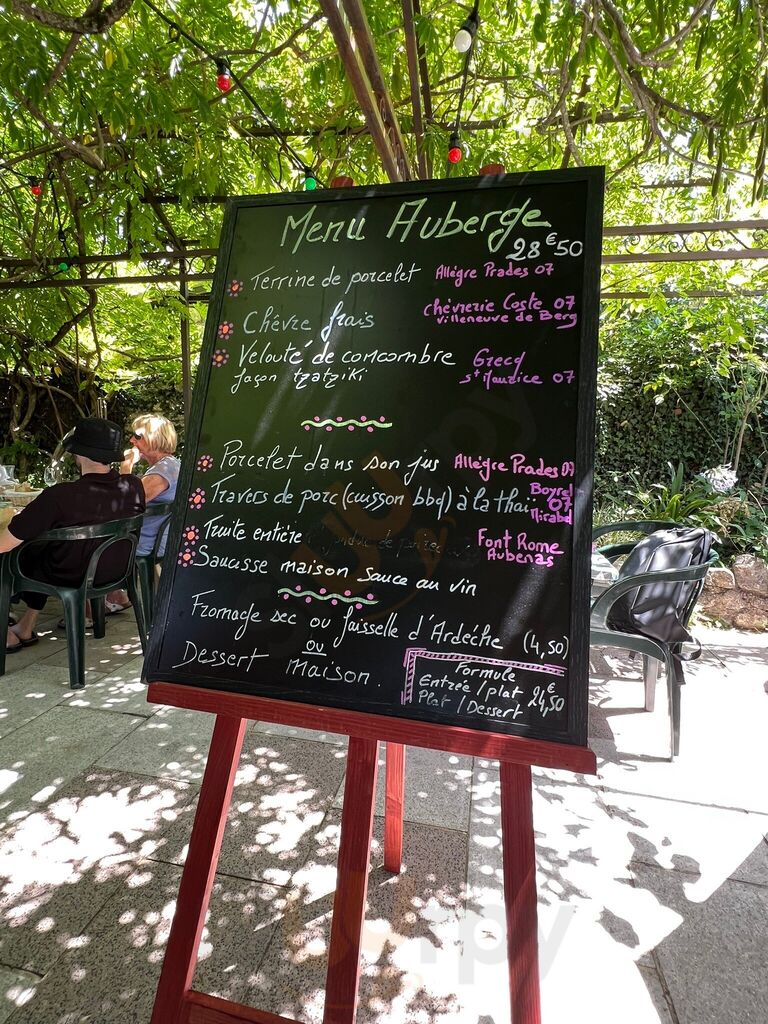 Menu Auberge
28€50
Terrine de porcelet Allègre Prades 07
Chèvre frais Chèvrerie Coste 07
Villeneuve de Berg
Velouté de concombre Grecq
façon tzatziki St Maurice 07
Porcelet dans son jus Allègre Prades 07
Travers de porc (cuisson bbq) à la thaï Boyrel
07
Mirabel
Truite entière Font Rome
Aubenas
Saucisse maison sauce au vin
Fromage sec ou faisselle d'Ardèche (4,50)
ou
Dessert maison.
Formule
Entrée / plat 24€,50
Plat / Dessert